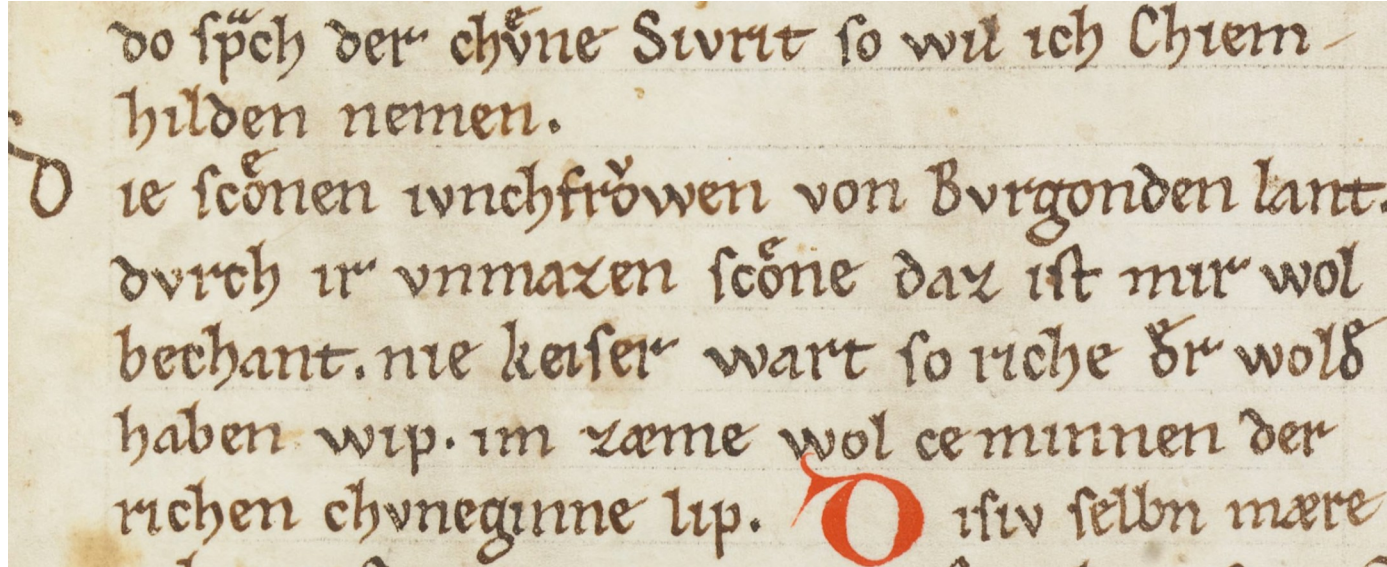 do ſpᷓch der chuͤne Sivrit ſo wil ich Chiem-
hilden nemen.
d ie ſcoͤnen ivnchfroͮwen von Bvrgonden lant.
dvrch ir vnmazen ſcoͤne daz iſt mir wol
bechant. nie keiſer wart ſo riche ðr wolð
haben wip. im zæme wol ce minnen der
richen chvneginne lip. D iſiv ſelbn mære